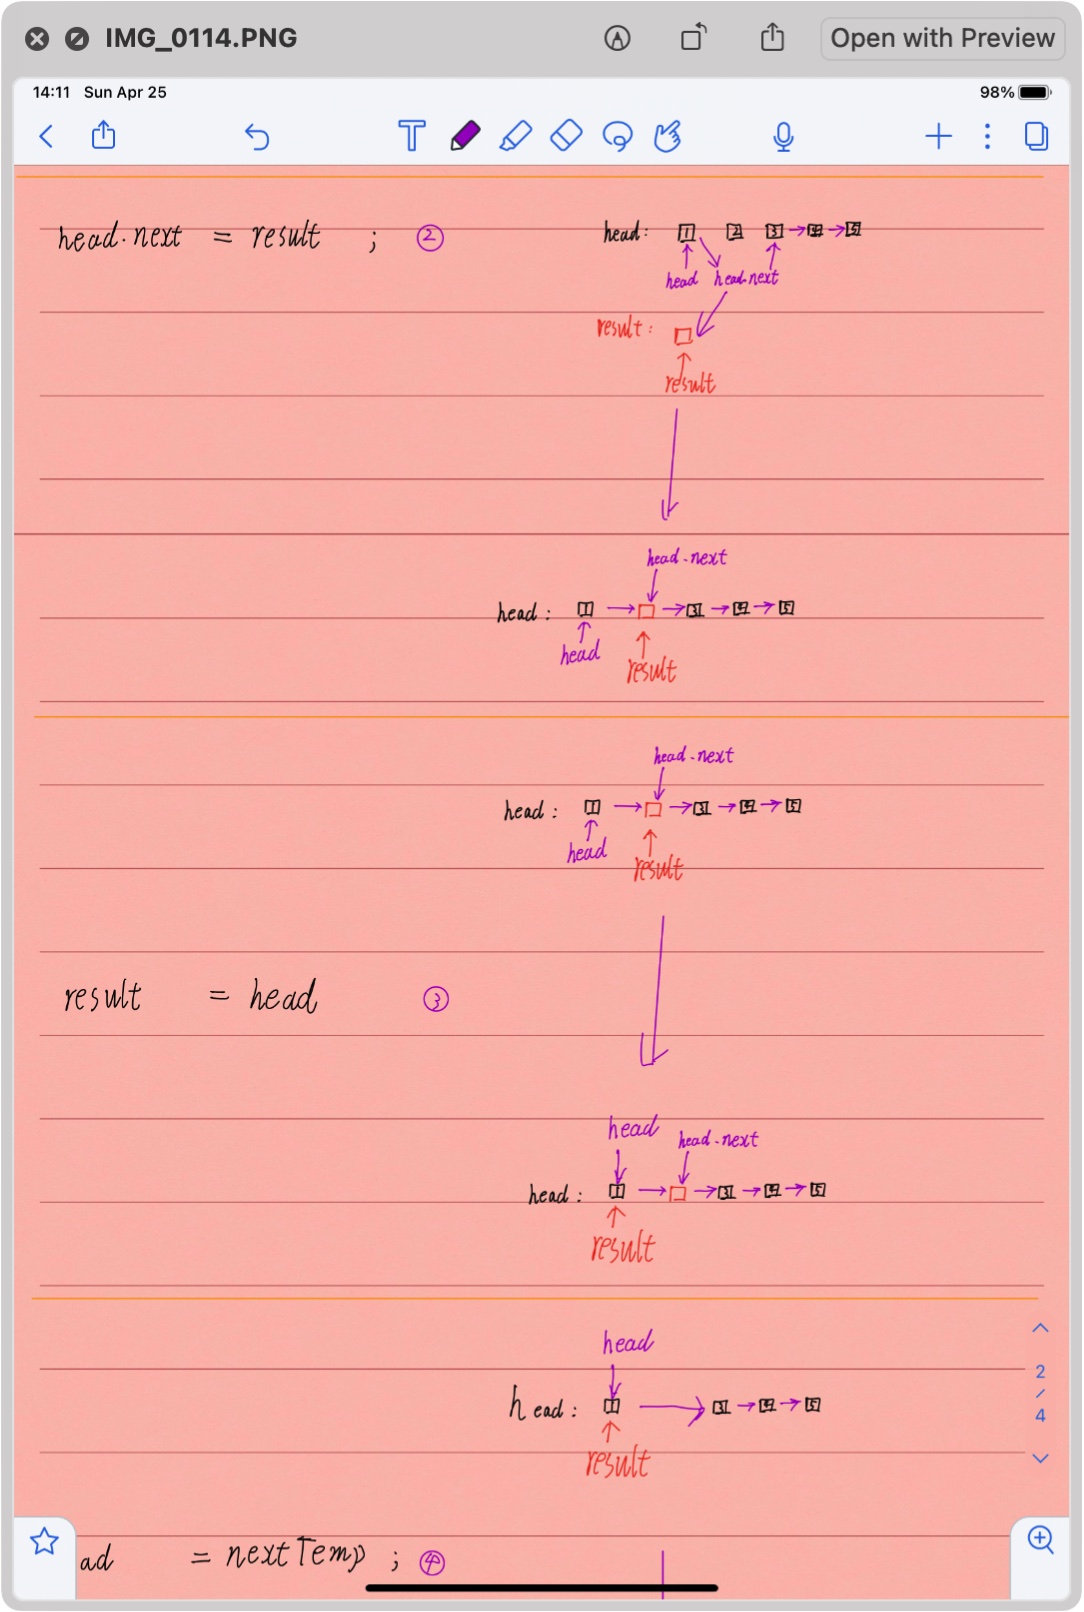 IMG_0114.PNG Open with Preview
14:11 Sun Apr 25 98%
head.next = result ; ②
head: 1 2 3 → 4 → 5
head head.next
result:
result
head.next
head: 1 → → 3 → 4 → 5
head result
head.next
head: 1 → → 3 → 4 → 5
head result
result = head ③
head head.next
head: 1 → → 3 → 4 → 5
result
head
head: 1 → 3 → 4 → 5
result
2
/
4
ad = nextTemp ; ④